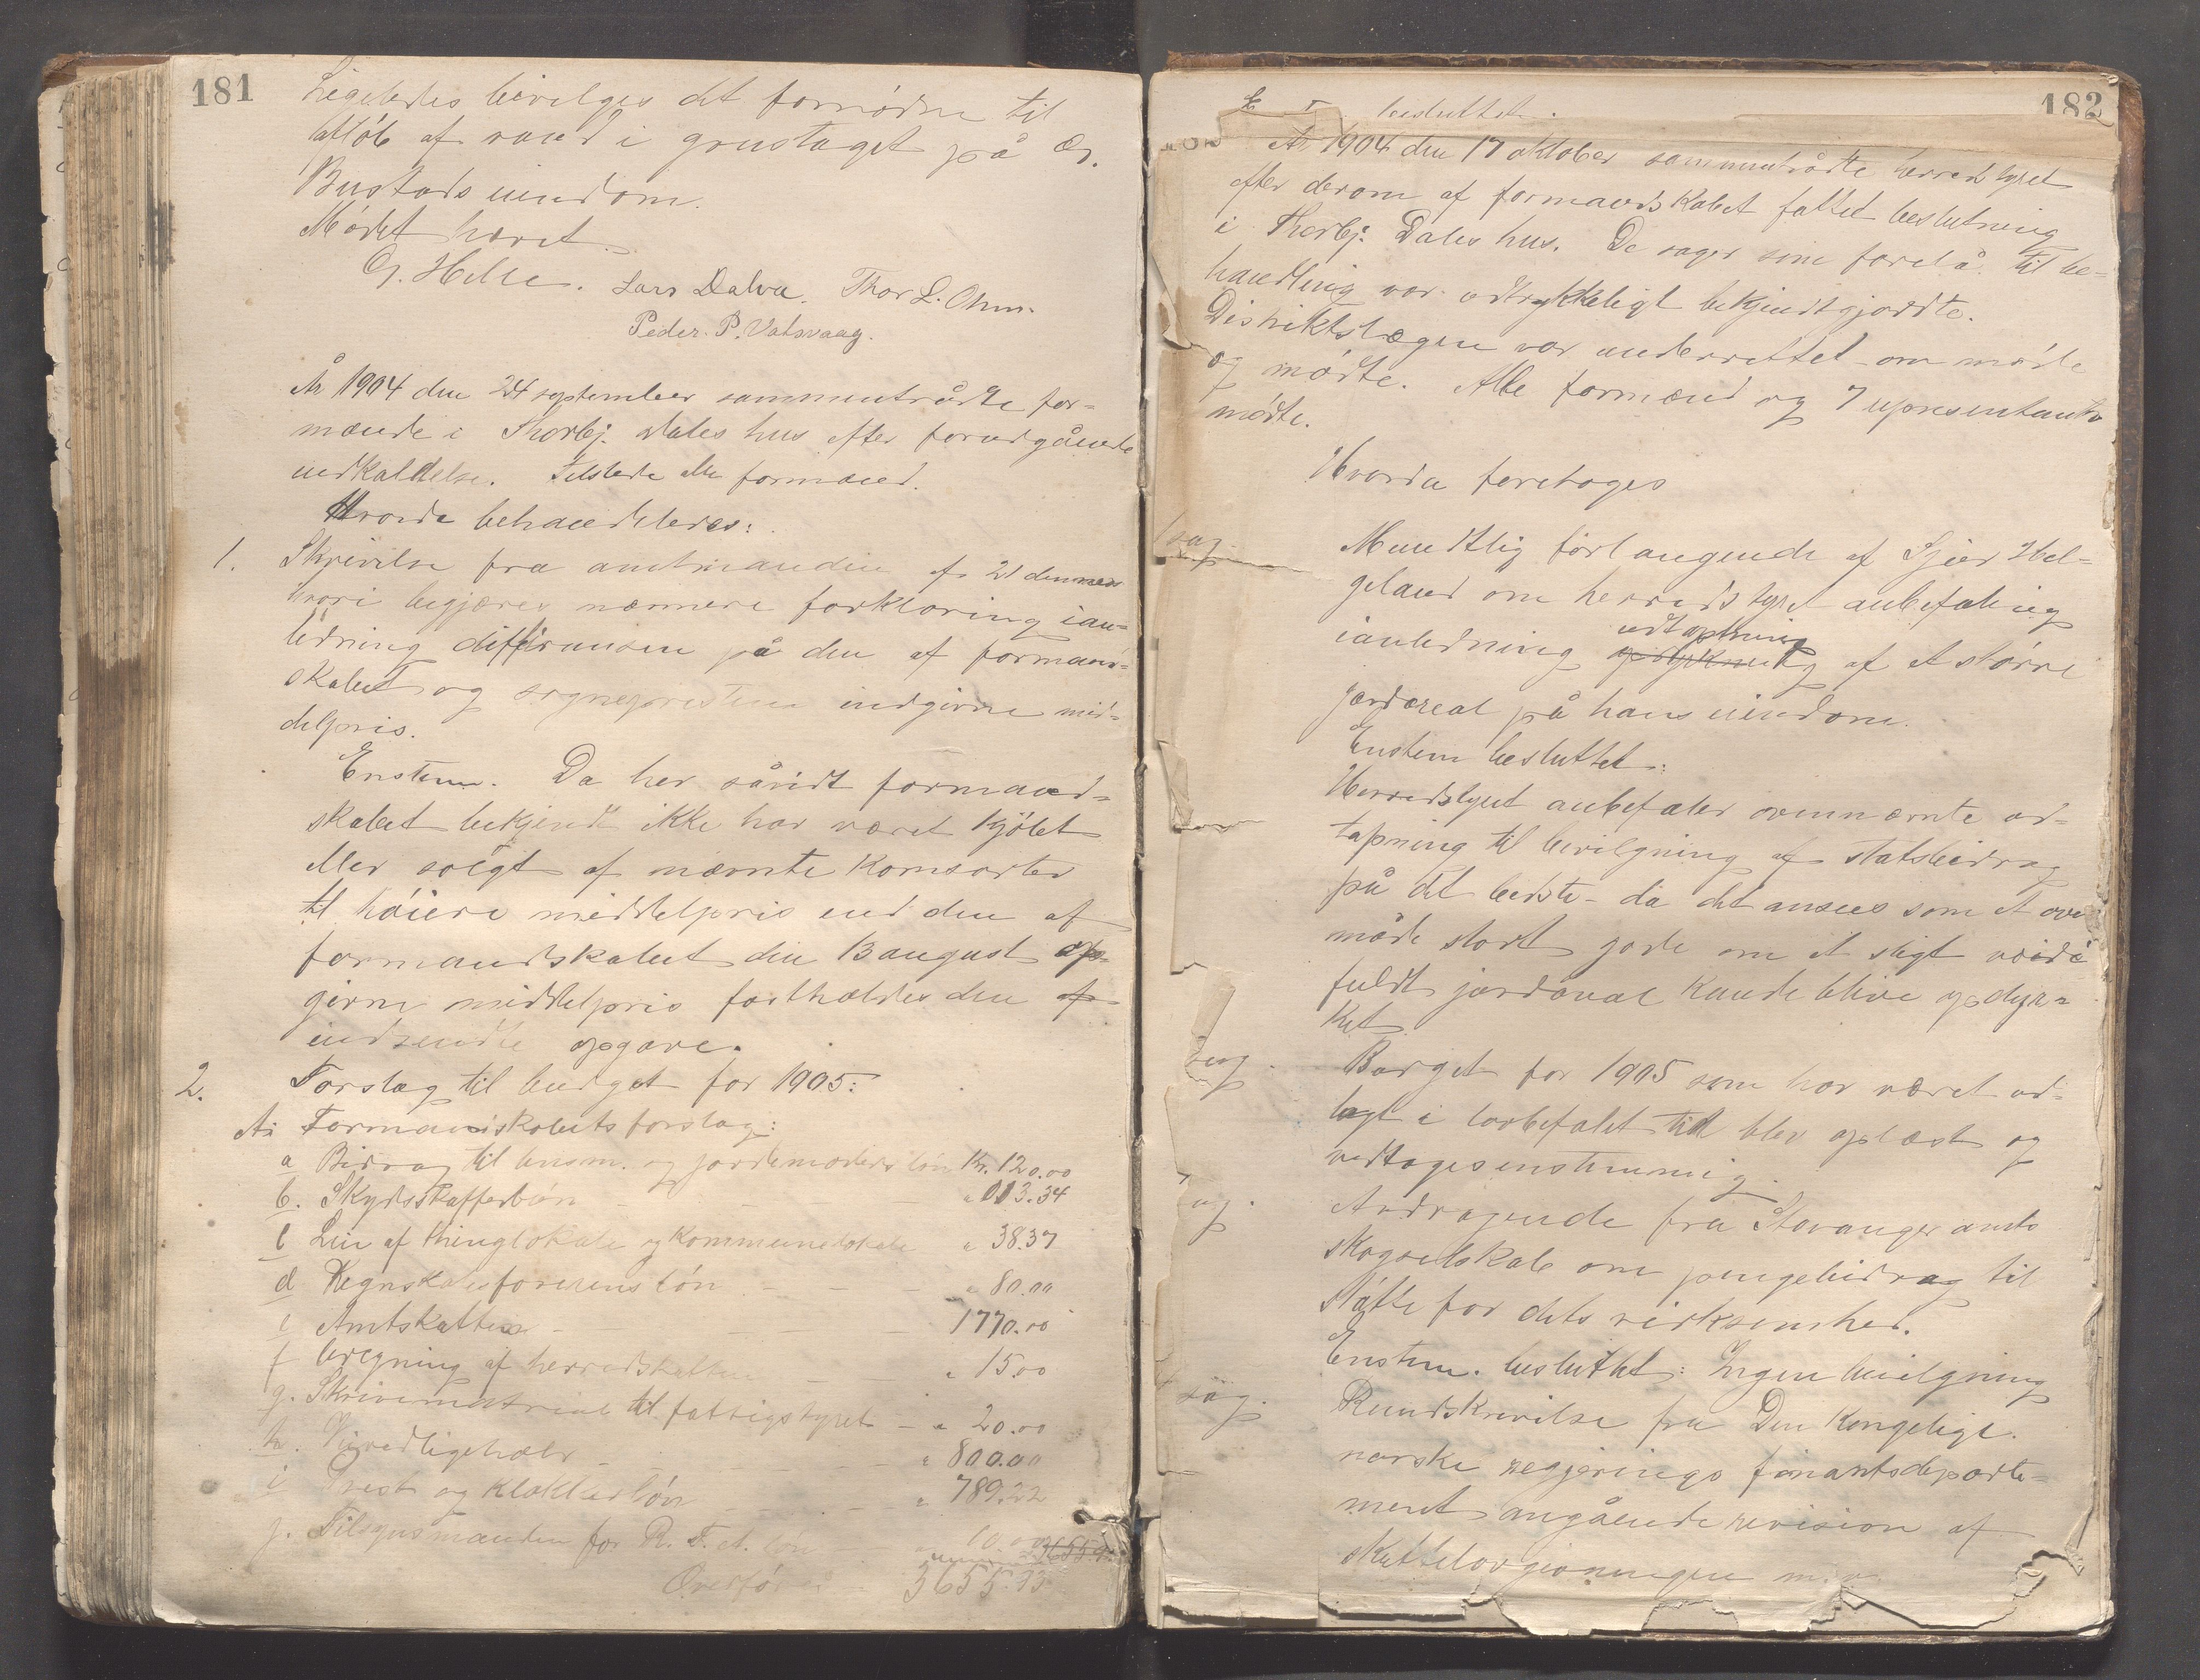 181
Ligeledes bevilges det fornødne til
afløb af vand i grustaget på Œ.
Bustads eiendom.
Mødet hævet.
G. Helle. Lars Dalva. Thor L. Ohm.
Peder P. Vatsvaag.
År 1904 den 24 september sammentrådte for-
mænde i Thorbj. Dales hus efter forudgående
indkaldelse. Tilstede alle formænd.
Hvorda behandledes:
1. Skrivelse fra amtmanden af 21 dennes
hvori begjæres nærmere forklaring ian-
ledning differansen på den af formand-
skabet og sognepresten indgivne mid-
delpris.
Enstem. Da her såvidt formand-
skabet bekjendt ikke har været kjøbt
eller solgt af nævnte kornsorter
til høiere middelpris end den af
formandskabet den 13 august op-
givne middelpris fastholdes den
indsendte opgave.
2. Forslag til budget for 1905:
A: Formandskabets forslag:
a Bidrag til lensm. og jordemoders løn Kr. 120.00
b. Skydsskafferløn - - " 013.34
c Leie af thinglokale og kommunelokale " 38.37
d Regnskabsførerens løn - - - " 80.00
e Amtskatten - - - - 1770.00
f beregning af herredskatten - - " 15.00
g. Skrivematerial til fattigstyret - " 20.00
h. Veivedligehold - - - - " 800.00
i Prest og klokkerløn - - - " 789.22
j. Tilsynsmanden for R. T. A. løn - - " 10.00
Overført 3655.93
182
besluttet.
År 1904 den 17 oktober sammentrådte herredstyret
efter derom af formandskabet fattet beslutning
i Thorbj. Dales hus. De sager som forelå til be-
handling var udtrykkeligt bekjendtgjordte.
Distriktslægen var underrettet om møde
og mødte. Alle formænd og 7 representantr
mødte.
Hvorda foretoges
sag. Mundtlig forlangende af Sjur Hel-
geland om herredstyret anbefaling
udtapning
ianledning opdyrkning af et større
jordareal på hans eiendom.
Enstem besluttet:
Herredstyret anbefaler ovennævnte ud-
tapning til bevilgning af statsbidrag
på det bedste - da det ansees som et over
måde stort gode om et sligt værdi
fuldt jordareal kunde blive opdyr-
ket
sag. Budget for 1905 som har været ud-
lagt i lovbefalet tid blev oplæst og
vedtoges enstemmig.
sag. Andragende fra Stavanger amts
skogselskab om pengebidrag til
støtte for dets virksomhed.
Enstem. besluttet: Ingen bevilgning
sag. Rundskrivelse fra Den kongelige
norske regjerings finantsdeparte-
ment angående revision af
skattelovgivningen m. v.